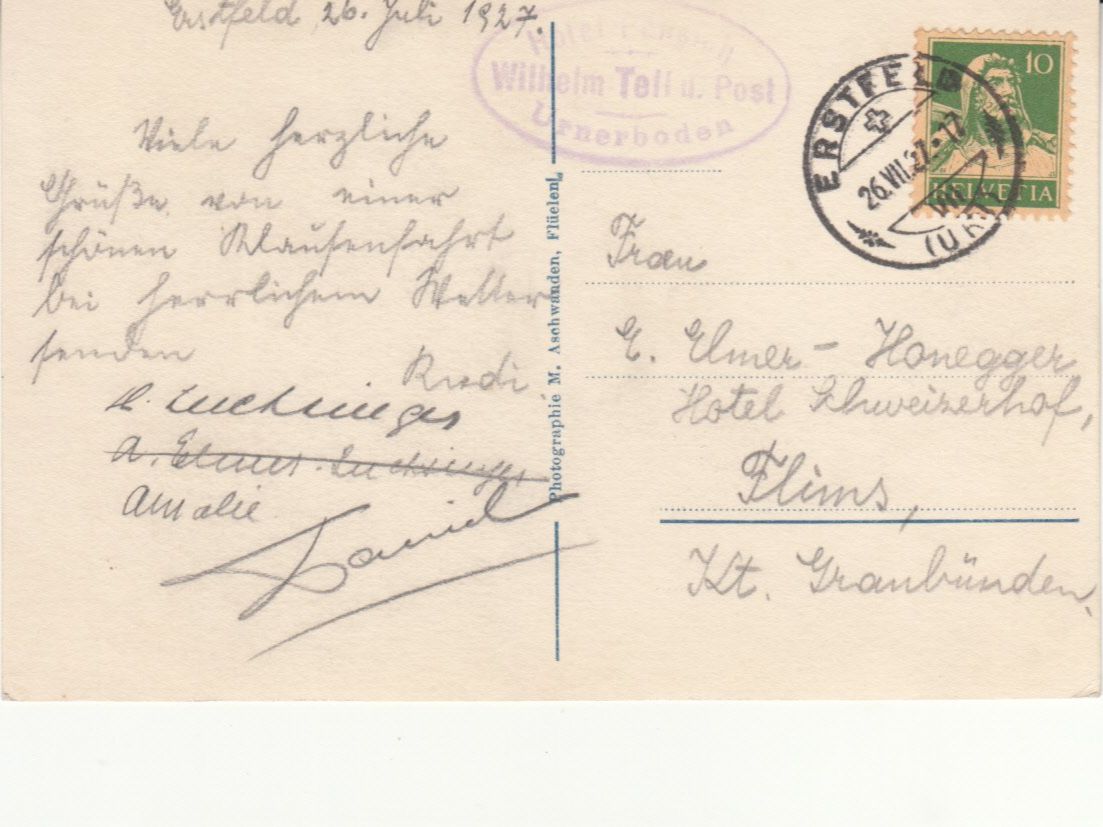 Erstfeld, 26. Juli 1927.
Viele herzliche
Grüße von einer
schönen Klausenfahrt
bei herrlichem Wetter
senden
Ruedi
A. Luchsinger
A. Elmer-Luchsinger
Amalie
Daniel
Hotel Pension
Wilhelm Tell u. Post
Urnerboden
Photographie M. Aschwanden, Flüelen
ERSTFELD
26.VII.27.-17
(URI)
10
HELVETIA
Frau
E. Elmer-Honegger
Hotel Schweizerhof,
Flims,
Kt. Graubünden.